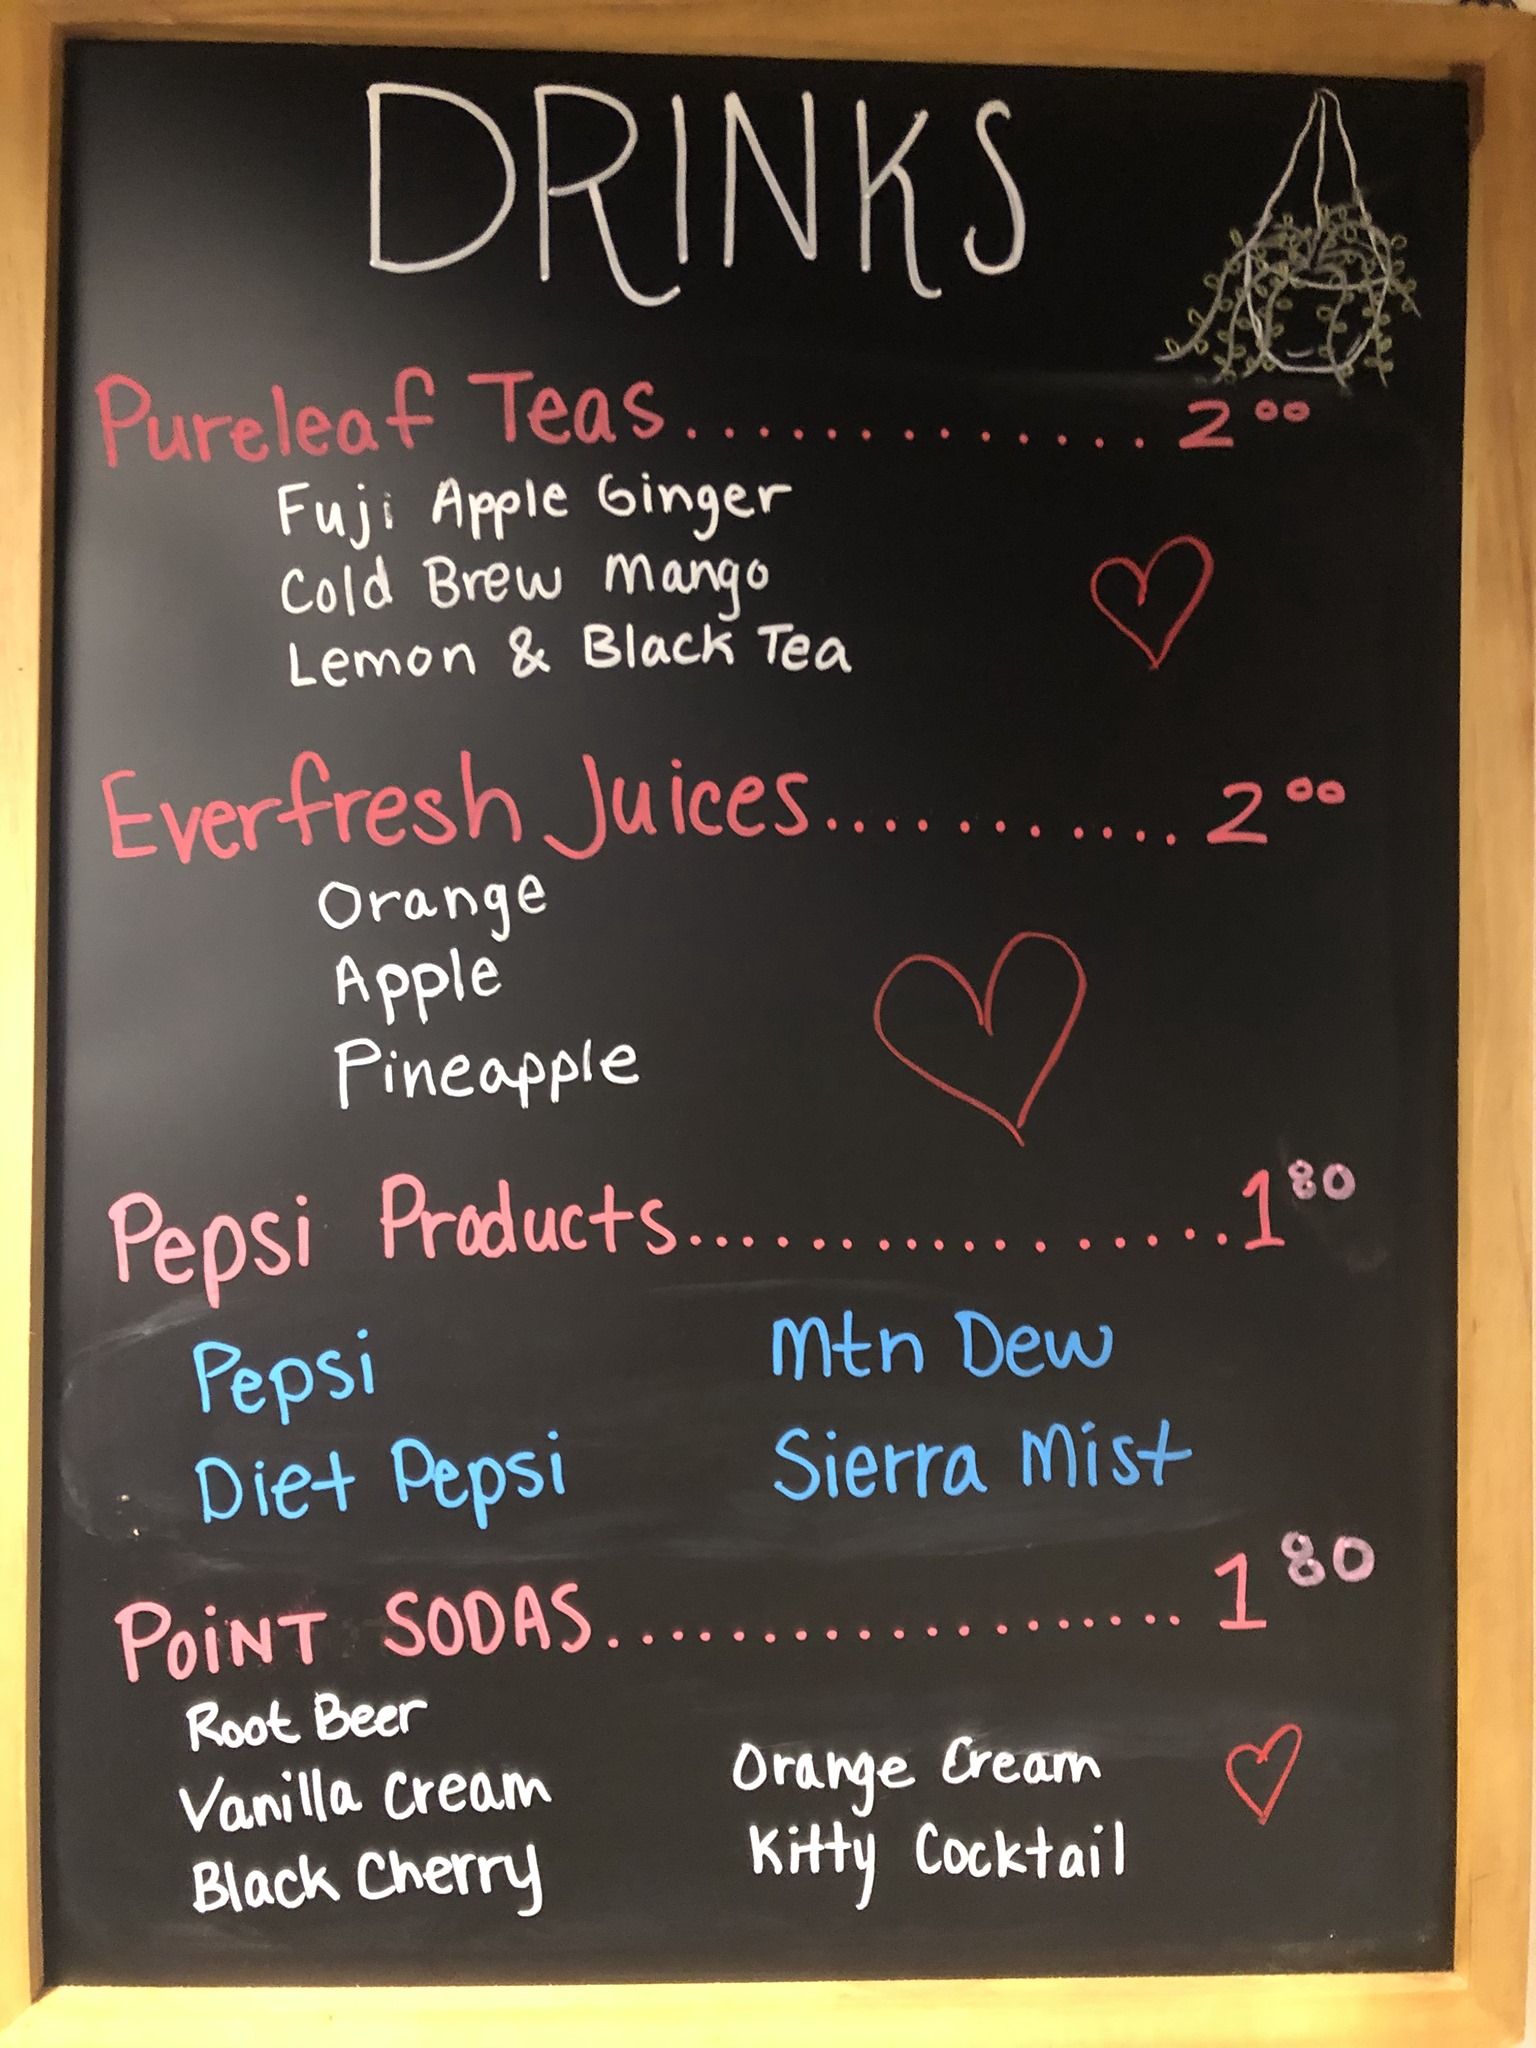 DRINKS
Pureleaf Teas.............. 2 00
Fuji Apple Ginger
Cold Brew Mango
Lemon & Black Tea
Everfresh Juices............ 2 00
Orange
Apple
Pineapple
Pepsi Products................. 1 80
Pepsi
Mtn Dew
Diet Pepsi
Sierra Mist
POiNT SODAS................... 1 80
Root Beer
Vanilla Cream
Orange Cream
Black Cherry
Kitty Cocktail